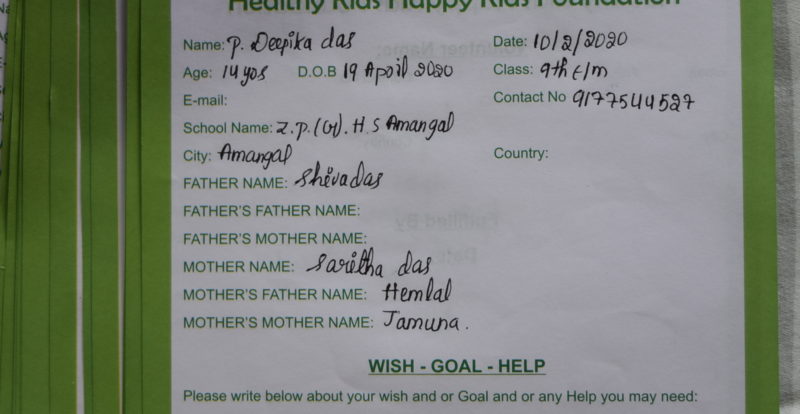 Healthy Kids Happy Kids Foundation
Name: P. Deepika das Date: 10/2/2020
Age: 14 yrs D.O.B 19 April 2020 Class: 9th E/m
E-mail: Contact No 9177544527
School Name: Z.P.(G). H.S Amangal
City: Amangal Country:
FATHER NAME: Shivadas
FATHER'S FATHER NAME:
FATHER'S MOTHER NAME:
MOTHER NAME: Saritha das
MOTHER'S FATHER NAME: Hemlal
MOTHER'S MOTHER NAME: Jamuna.
WISH - GOAL - HELP
Please write below about your wish and or Goal and or any Help you may need: